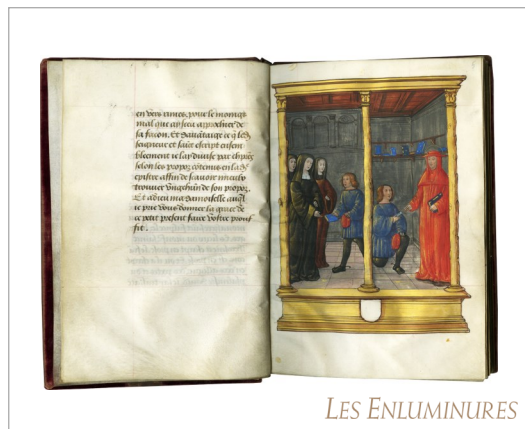 en vers rimes, pour le moins
mal que ap sera approcher de
sa facon. Et davātaige ce q̄ led
seigneur et saīt escript ensem
blement ie lay divise par chp̄res
selon les propoz cōtenus en la
epistre affin de scavoir mieulx
trouver ung chūn de son propoz.
Et adieu ma damoiselle auq̄l
ie prie vous donner la grace de
ce petit present faire vostre prou
fit.
LES ENLUMINURES